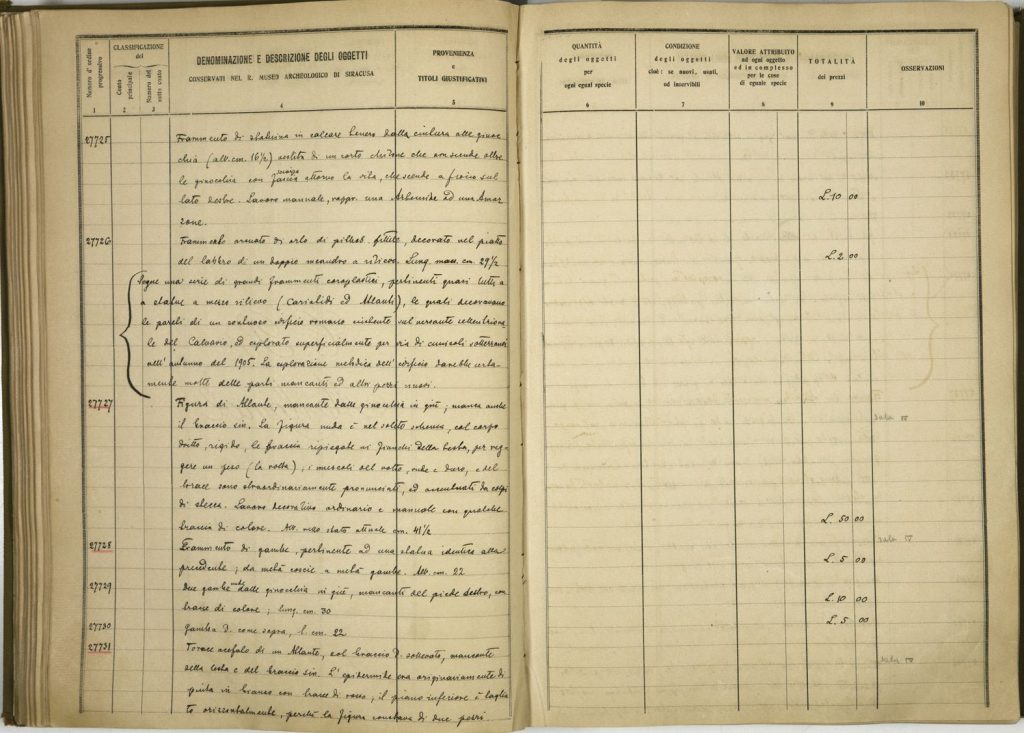 Numero d'ordine progressivo
CLASSIFICAZIONE
del
Conto principale
Numero del sotto conto
DENOMINAZIONE E DESCRIZIONE DEGLI OGGETTI
CONSERVATI NEL R. MUSEO ARCHEOLOGICO DI SIRACUSA
PROVENIENZA
e
TITOLI GIUSTIFICATIVI
1 2 3 4 5
27725 Frammento di statuina in calcare tenero dalla cintura alle ginoc
chia (alt. cm. 16½) vestita di un corto chitone che non scende oltre
le ginocchia con fascia attorno la vita, che scende a fiocco sul
lato destro. Lavoro manuale, rappr. una Artemide od una Amaz
zone.
27726 Frammento arcuato di orlo di pithos fittile, decorato nel piatto
del labbro di un doppio meandro a rilievo. Lung. mass. cm. 29½
Segue una serie di grandi frammenti coroplastici, pertinenti quasi tutti a
a statue a mezzo rilievo (Cariatidi ed Atlanti), le quali decoravano
le pareti di un sontuoso edificio romano esistente sul versante settentriona
le del Calvario, ed esplorato superficialmente per via di cunicoli sotterranei
nell'autunno del 1905. La esplorazione metodica dell'edificio darebbe certa
mente molte delle parti mancanti ed altri pezzi nuovi.
27727 Figura di Atlante, mancante dalle ginocchia in giù; manca anche
il braccio sin. La figura nuda è nel solito schema, col corpo
dritto, rigido, le braccia ripiegate ai fianchi della testa, per reg
gere un peso (la volta); i muscoli del volto, rude e duro, e del
torace sono straordinariamente pronunciati, ed accentuati da colpi
di stecca. Lavoro decorativo ordinario e manuale con qualche
traccia di colore. Alt. nello stato attuale cm. 41½
27728 Frammento di gambe, pertinente ad una statua identica alla
precedente; da metà coscie a metà gambe. Alt. cm. 22
27729 Due gambe nude dalle ginocchia in giù, mancanti del piede destro, con
tracce di colore; lung. cm. 30
27730 Gamba d. come sopra, l. cm. 22
27731 Torace acefalo di un Atlante, col braccio d. sollevato, mancante
della testa e del braccio sin. L'epidermide era originariamente di
pinta in bianco con tracce di rosso, il piano inferiore è taglia
to orizzontalmente, perchè la figura constava di due pezzi.
QUANTITÀ
degli oggetti
per
ogni egual specie
CONDIZIONE
degli oggetti
cioè: se nuovi, usati,
od inservibili
VALORE ATTRIBUITO
ad ogni oggetto
ed in complesso
per le cose
di eguale specie
TOTALITÀ
dei prezzi
OSSERVAZIONI
6 7 8 9 10
L. 10 00
L. 2 00
sala IV
L. 50 00
sala IV
L. 5 00
L. 10 00
L. 5 00
sala IV